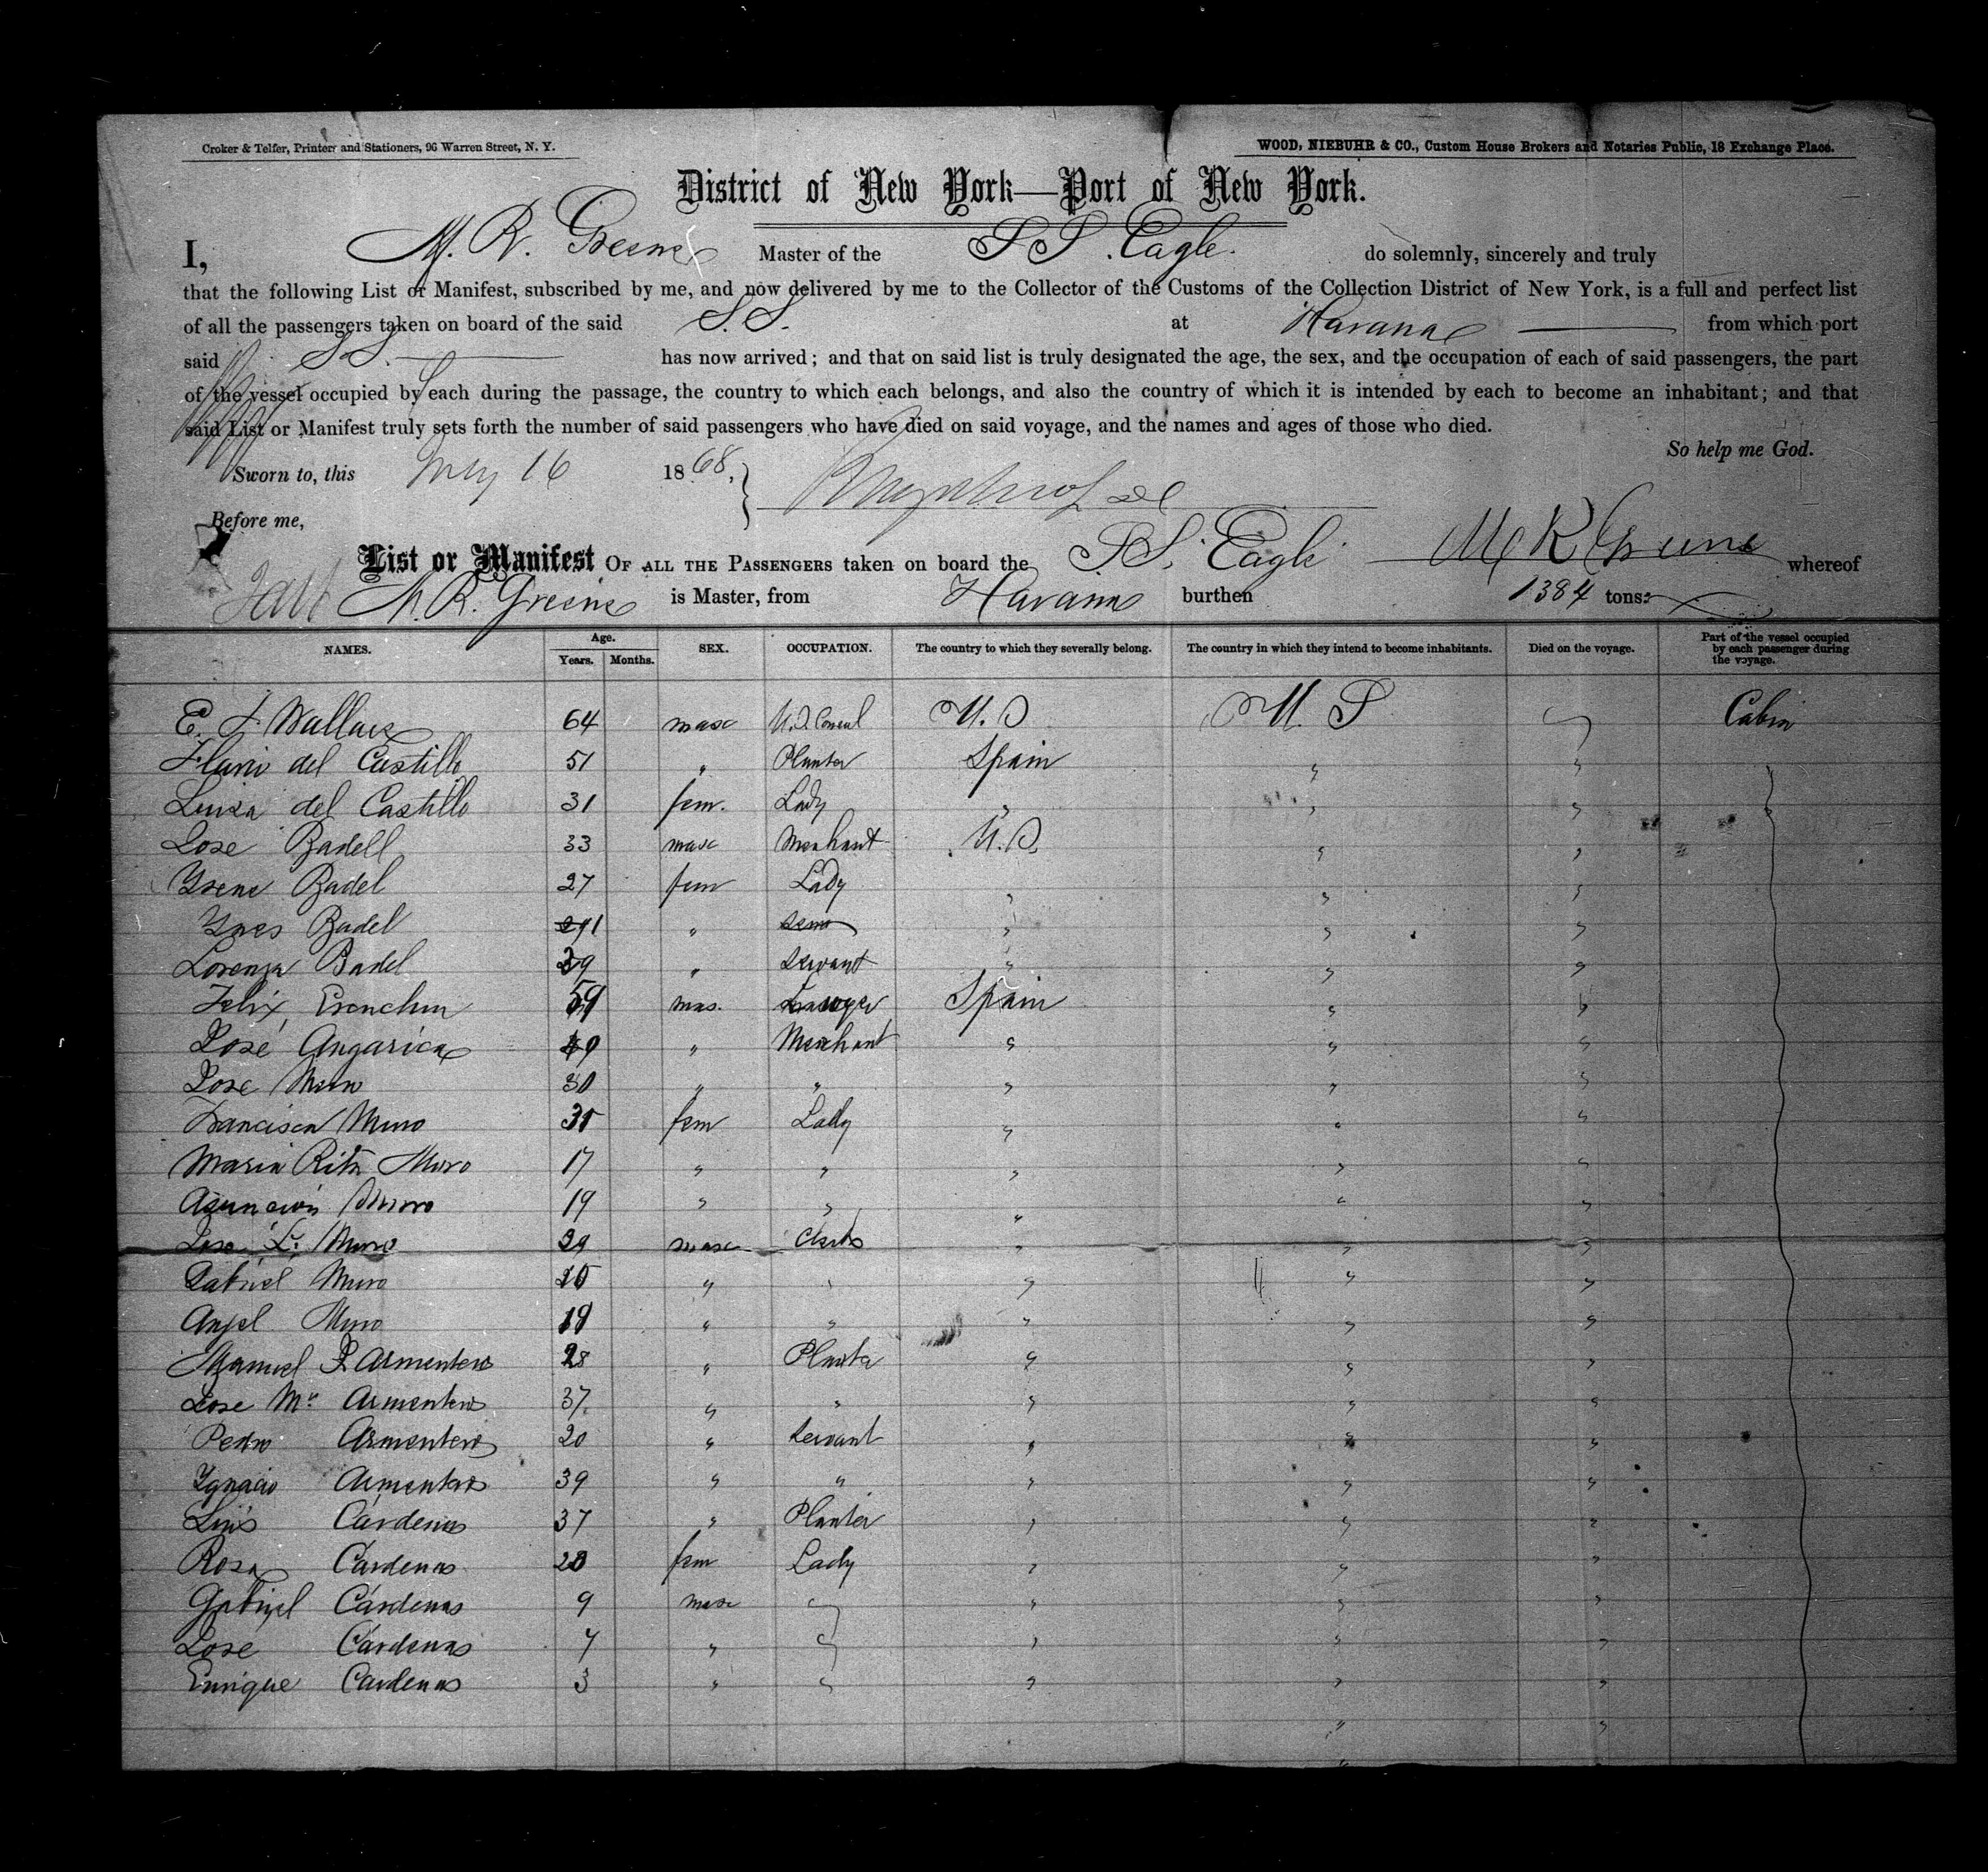 Croker & Telfer, Printers and Stationers, 96 Warren Street, N. Y.
WOOD, NIEBUHR & CO., Custom House Brokers and Notaries Public, 18 Exchange Place.
District of New York—Port of New York.
I, M. R. Greene Master of the S S. Eagle. do solemnly, sincerely and truly
that the following List or Manifest, subscribed by me, and now delivered by me to the Collector of the Customs of the Collection District of New York, is a full and perfect list
of all the passengers taken on board of the said S.S. at Havana from which port
said S.S. has now arrived; and that on said list is truly designated the age, the sex, and the occupation of each of said passengers, the part
of the vessel occupied by each during the passage, the country to which each belongs, and also the country of which it is intended by each to become an inhabitant; and that
said List or Manifest truly sets forth the number of said passengers who have died on said voyage, and the names and ages of those who died.
So help me God.
Sworn to, this May 16 1868,
Before me,
List or Manifest OF ALL THE PASSENGERS taken on board the S S. Eagle M R Greene whereof
M. R. Greene is Master, from Havana burthen 1384 tons.
NAMES. Age. Years. Months. SEX. OCCUPATION. The country to which they severally belong. The country in which they intend to become inhabitants. Died on the voyage. Part of the vessel occupied by each passenger during the voyage.
E. F Wallace 64 masc U.S. Consul U.S U. S Cabin
del Castillo 51 " Planter Spain " "
Luisa del Castillo 31 fem. Lady " " "
Jose Badell 33 masc Merchant U.S. " "
Yrene Badel 27 fem Lady " " "
Ynes Badel " " " "
Lorenza Badel 39 " servant " " "
Felix 59 mas. Lawyer Spain " "
José Angarica 49 " Merchant " " "
Jose Muro 30 " " " " "
Francisca Muro 35 fem Lady " " "
Maria Rita Muro 17 " " " " "
Asuncion Muro 19 " " " " "
Jose L. Muro 29 masc Clerk " " "
Gabriel Muro " " " " "
Anjel Muro 19 " " " " "
Manuel J. Armenteros 28 " Planter " " "
Jose Ma. Armenteros 37. " " " " "
Pedro Armenteros 20 " servant " " "
Ygnacio Armenteros 39 " " " " "
Luis Cárdenas 37 " Planter " " "
Rosa Cárdenas fem Lady " " "
Gabriel Cárdenas 9 masc " " "
Jose Cárdenas 7 " " " "
Enrique Cardenas 3 " " " " "
" "
"